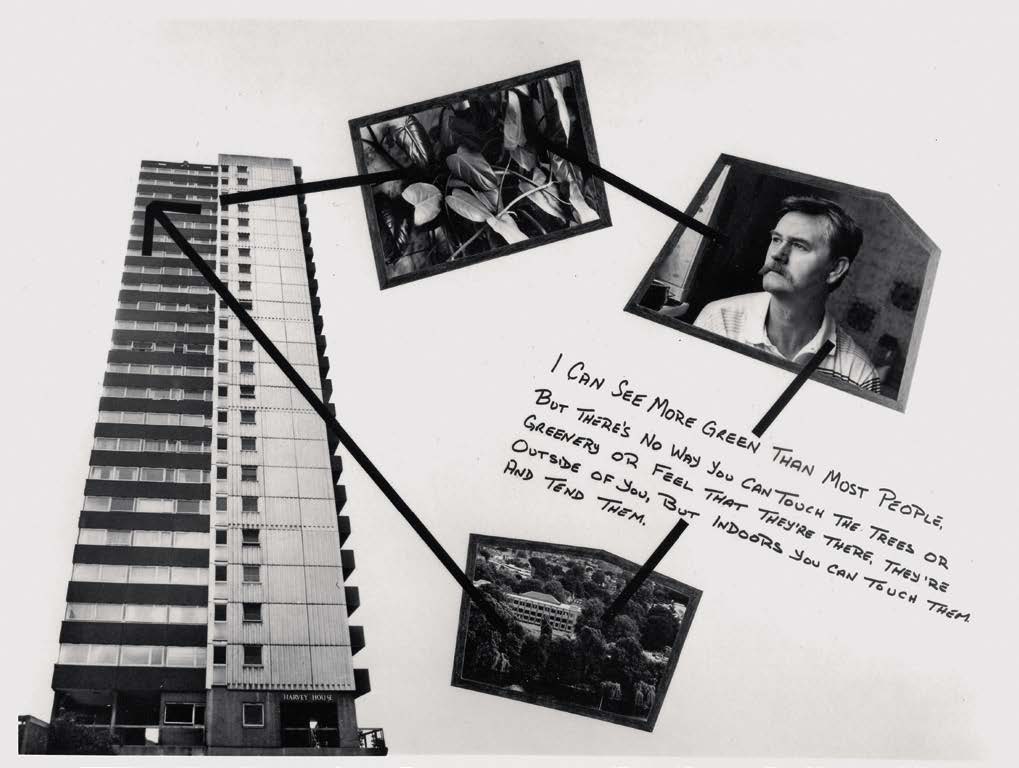 I CAN SEE MORE GREEN THAN MOST PEOPLE,
BUT THERE'S NO WAY YOU CAN TOUCH THE TREES OR
GREENERY OR FEEL THAT THEY'RE THERE, THEY'RE
OUTSIDE OF YOU, BUT INDOORS YOU CAN TOUCH THEM
AND TEND THEM.
HARVEY HOUSE